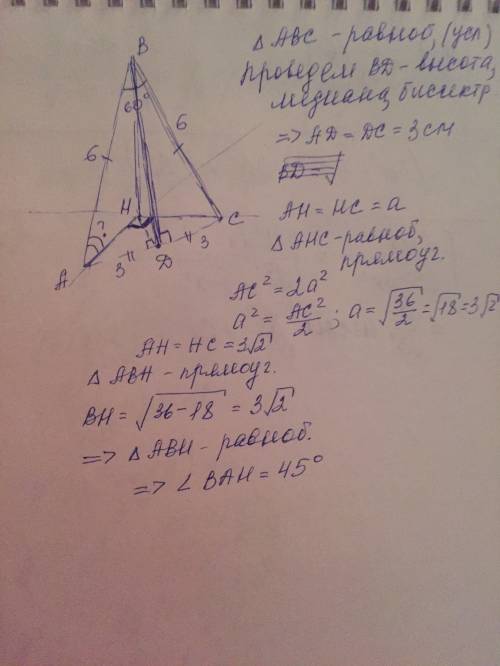 Δ ABC - равноб, (усл)
проведем BD - высота,
медиана, биссектр
=> AD = DC = 3см
BD = √
AH = HC = a
Δ AHC - равноб,
прямоуг.
AC² = 2a²
a² = AC²/2 ; a = √36/2 = √18 = 3√2
AH = HC = 3√2
Δ ABH - прямоуг.
BH = √36-18 = 3√2
=> Δ ABH - равноб.
=> ∠ BAH = 45°
B
60°
6
6
H
C
?
A
3
D
3